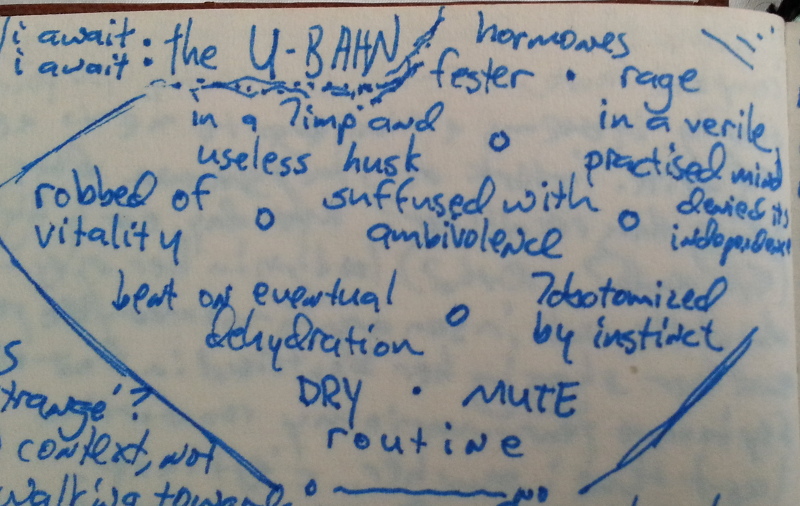 i await • the U-BAHN hormones
i await •
fester • rage
in a limp and in a verile,
useless husk practised mind
robbed of suffused with denied its
vitality ambivolence independence
bent on eventual lobotomized
dehydration by instinct
DRY • MUTE
routine
context, not